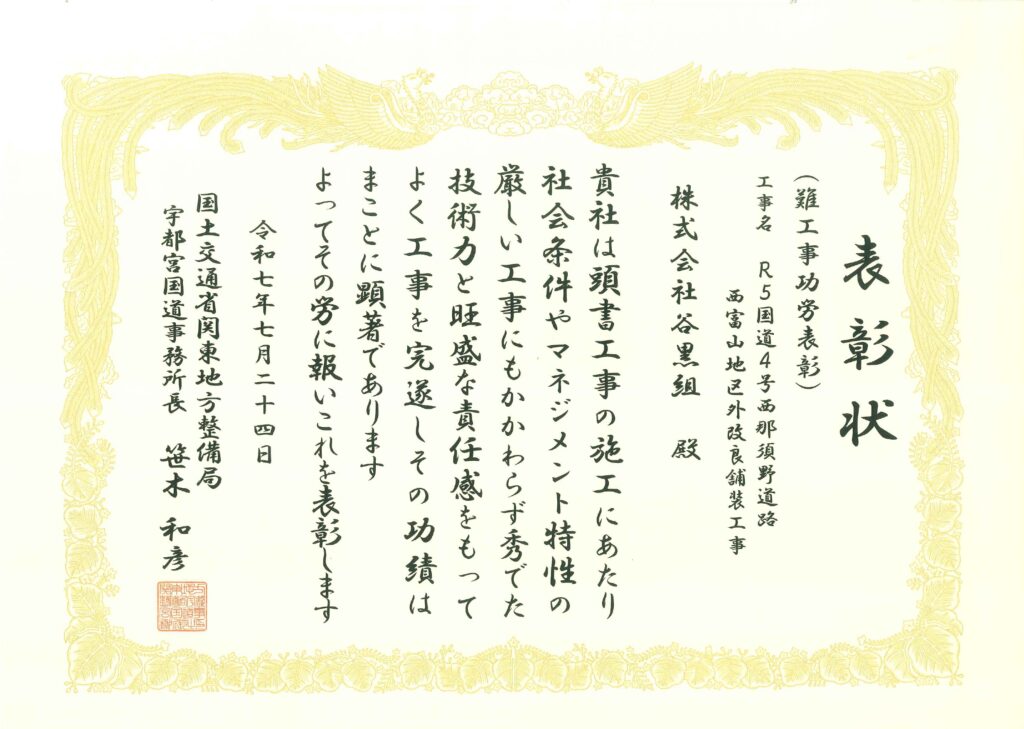 表彰状
(難工事功労表彰)
工事名 R5国道4号西那須野道路
西富山地区外改良舗装工事
株式会社谷黒組 殿
貴社は頭書工事の施工にあたり
社会条件やマネジメント特性の
厳しい工事にもかかわらず秀でた
技術力と旺盛な責任感をもって
よく工事を完遂しその功績は
まことに顕著であります
よってその労に報いこれを表彰します
令和七年七月二十四日
国土交通省関東地方整備局
宇都宮国道事務所長 笹木 和彦